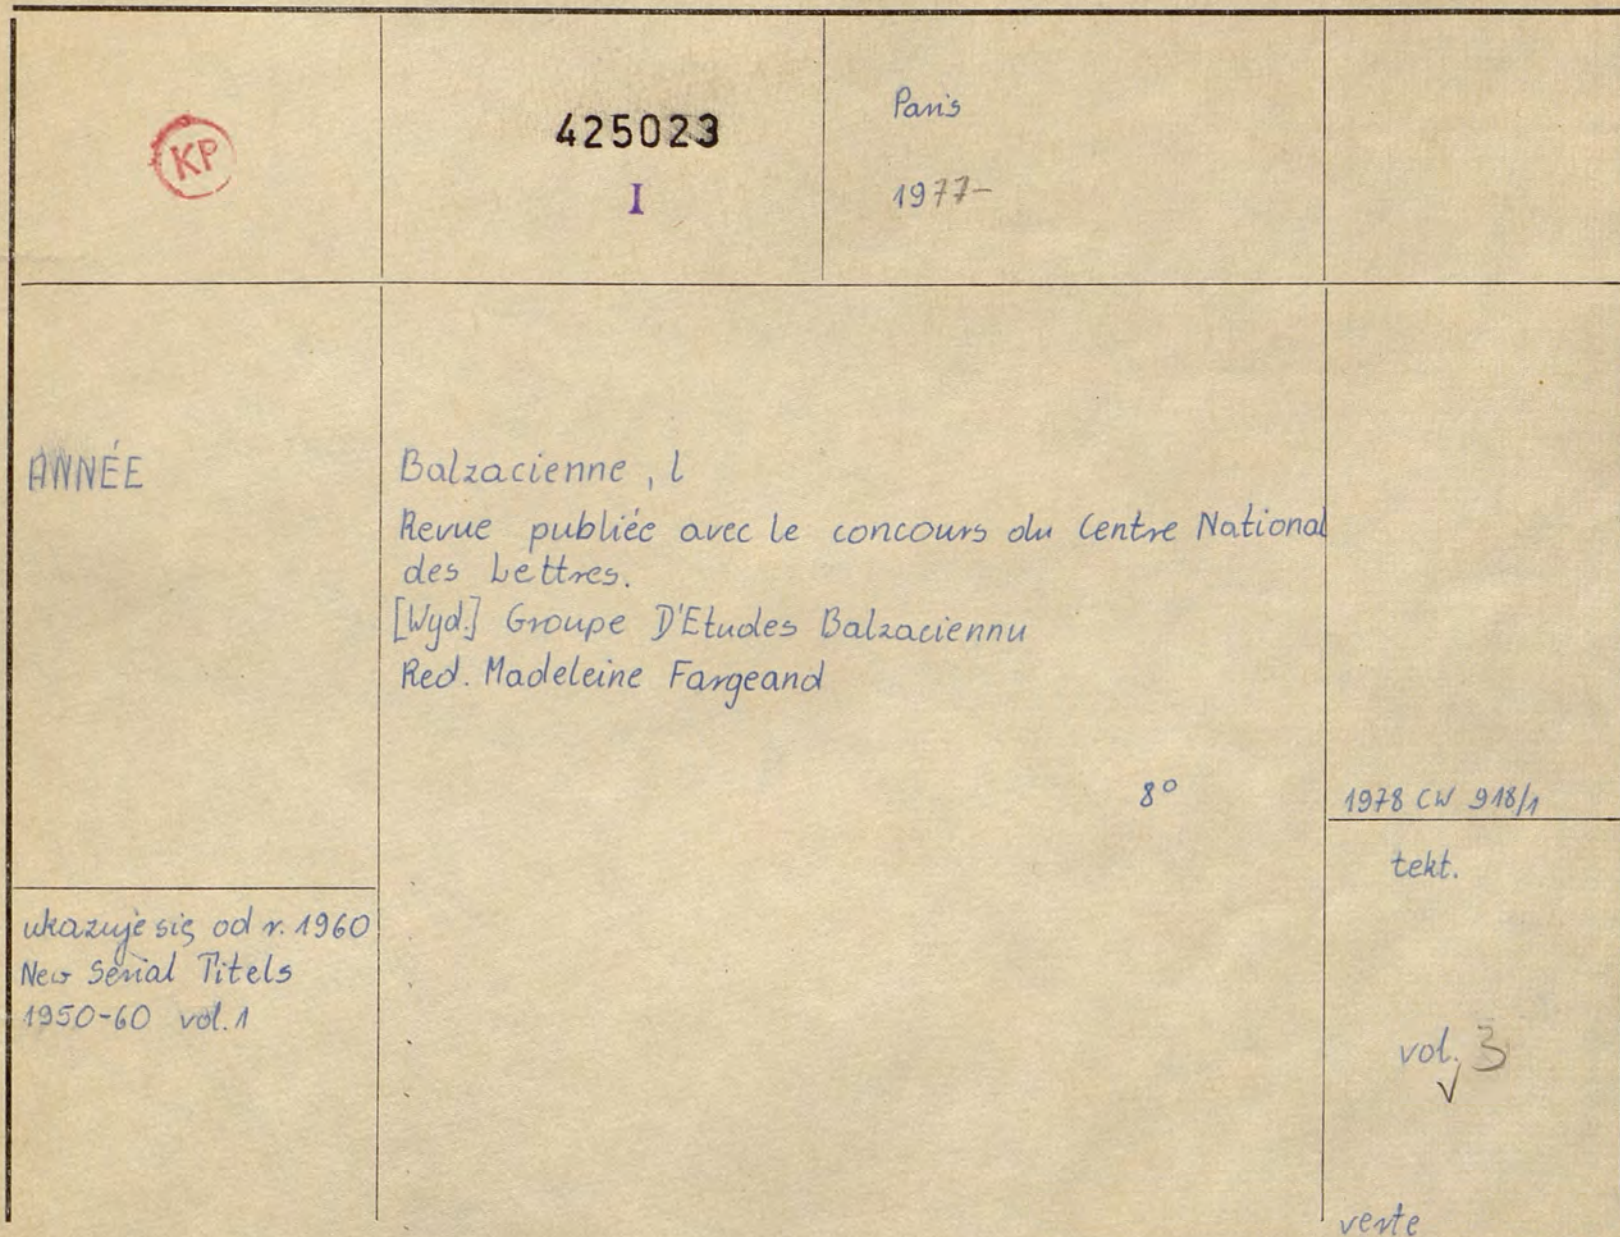 KP
425023
I
Paris
1977-
ANNÉE
Balzacienne, l
Revue publiée avec le concours du Centre National
des Lettres.
[Wyd.] Groupe D'Etudes Balzaciennu
Red. Madeleine Fargeand
8°
1978 CW 918/1
tekt.
ukazuje się od r. 1960
New Serial Titels
1950-60 vol. 1
vol. 3
verte